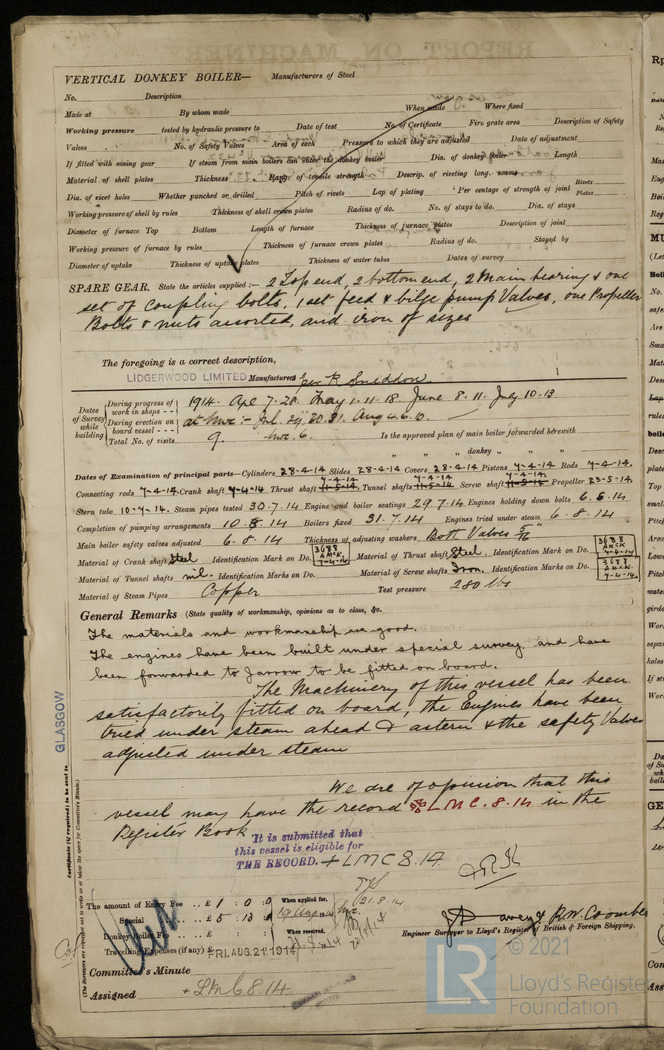 VERTICAL DONKEY BOILER— Manufacturers of Steel
No. Description
Made at By whom made When made Where fixed
Working pressure tested by hydraulic pressure to Date of test No. of Certificate Fire grate area Description of Safety
Valves No. of Safety Valves Area of each Pressure to which they are adjusted Date of adjustment
If fitted with easing gear If steam from main boilers can enter the donkey boiler Dia. of donkey boiler Length
Material of shell plates Thickness Range of tensile strength Descrip. of riveting long. seams
Dia. of rivet holes Whether punched or drilled Pitch of rivets Lap of plating Per centage of strength of joint Rivets Plates
Working pressure of shell by rules Thickness of shell crown plates Radius of do. No. of stays to do. Dia. of stays
Diameter of furnace Top Bottom Length of furnace Thickness of furnace plates Description of joint
Working pressure of furnace by rules Thickness of furnace crown plates Radius of do. Stayed by
Diameter of uptake Thickness of uptake plates Thickness of water tubes Dates of survey
SPARE GEAR. State the articles supplied:— 2 Top end, 2 bottom end, 2 Main bearing & one
set of coupling bolts, 1 set feed & bilge pump Valves, one Propeller
Bolts & nuts assorted, and iron of sizes
The foregoing is a correct description,
LIDGERWOOD LIMITED Manufacturers per R. Sneddon.
Dates of Survey while building
During progress of work in shops - - 1914. Apl 7. 28. May 1. 11. 18. June 8. 11. July 10. 13.
During erection on board vessel - - - at Nwc:- Jul. 29. 30. 31. Aug 4. 6. 10.
Total No. of visits 9. Nwc. 6. Is the approved plan of main boiler forwarded herewith
" " " donkey " " "
Dates of Examination of principal parts—Cylinders 28-4-14 Slides 28-4-14 Covers 28-4-14 Pistons 7-4-14. Rods 7-4-14.
Connecting rods 7-4-14. Crank shaft 7-4-14 Thrust shaft 7-4-14. Tunnel shafts 7-4-14. Screw shaft 7-4-14. Propeller 23-5-14.
Stern tube 10-7-14. Steam pipes tested 30.7.14 Engine and boiler seatings 29.7.14 Engines holding down bolts 6.8.14
Completion of pumping arrangements 10.8.14 Boilers fixed 31.7.14 Engines tried under steam 6.8.14
Main boiler safety valves adjusted 6.8.14 Thickness of adjusting washers Both Valves 5/16"
Material of Crank shaft Steel Identification Mark on Do. 3688 AMCK. 7-4-14. Material of Thrust shaft Steel. Identification Mark on Do. 3688 AMCK 7-4-14
Material of Tunnel shafts nil. Identification Marks on Do. Material of Screw shafts Iron. Identification Marks on Do. 3688 AMCK 7-4-14.
Material of Steam Pipes Copper Test pressure 280 lbs
General Remarks (State quality of workmanship, opinions as to class, &c.
The materials and workmanship are good.
The engines have been built under special survey. and have
been forwarded to Jarrow to be fitted on board.
The Machinery of this vessel has been
satisfactorily fitted on board, the Engines have been
tried under steam ahead & astern & the safety Valves
adjusted under steam
We are of opinion that this
vessel may have the record LMC. 8.14 in the
Register Book
It is submitted that
this vessel is eligible for
THE RECORD. + LMC 8.14
GLASGOW
Certificate (if required) to be sent to
(The Surveyors are requested not to write on or below the space for Committee's Minute.)
The amount of Entry Fee .. £ 1 : 0 : 0 When applied for,
Special .. £ 5 : 13 : 0
Donkey Boiler Fee .. £ When received,
Travelling Expenses (if any) £ FRI. AUG. 21 1914
R.W. Coomber
Engineer Surveyor to Lloyd's Register of British & Foreign Shipping.
Committee's Minute
Assigned + LMC 8.14
© 2021
LR
Lloyd's Register
Foundation